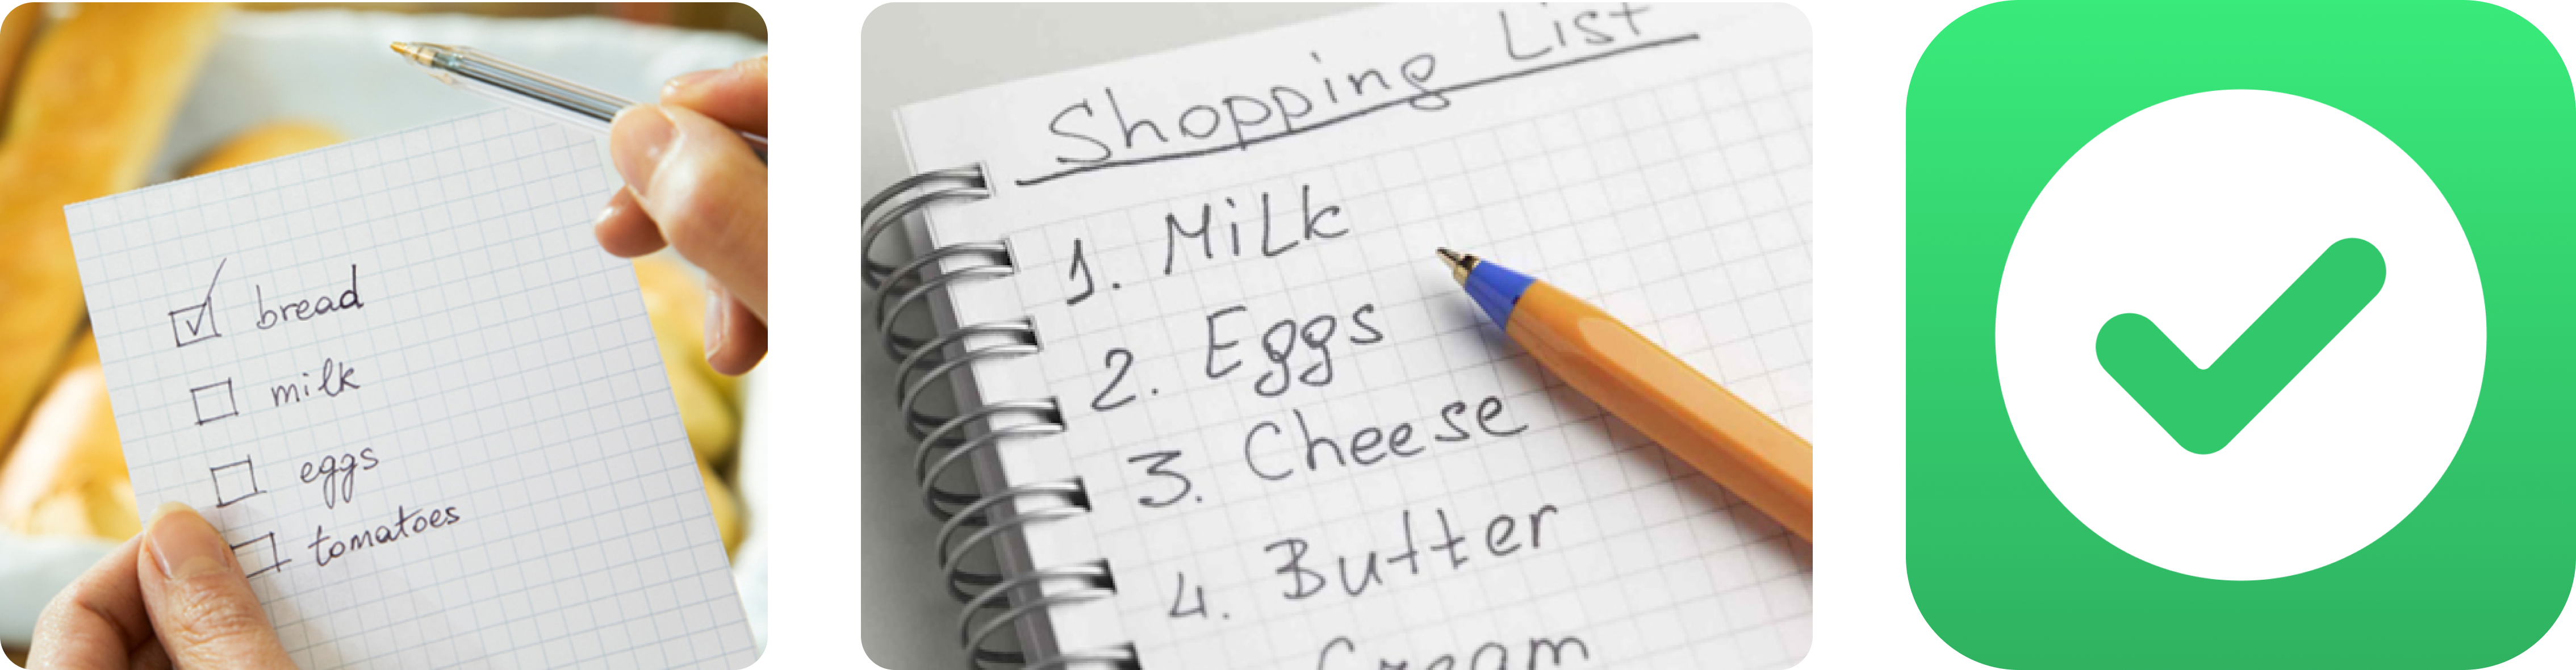 bread
milk
eggs
tomatoes
Shopping List
1. Milk
2. Eggs
3. Cheese
4. Butter
Cream